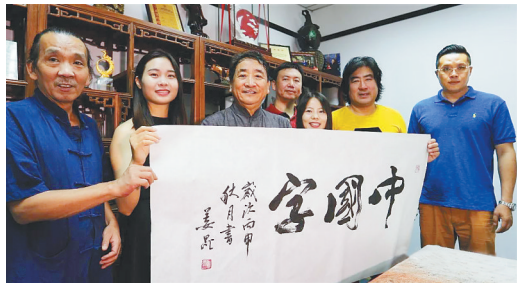 中國字
歲次丙申
秋月書
姜昆